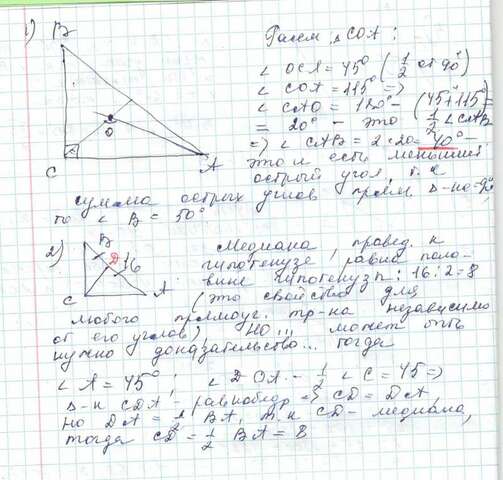 1) В
Расем. △ COA :
∠ OCA = 45° ( 1/2 от 90°)
∠ COA = 115° ⇒
∠ CAO = 180° - (45°+115°)=
= 20° - это ( 1/2 ∠ CAB
⇒ ∠ CAB = 2·20 = 40° -
это и есть меньший
острый угол, т. к
O
C
A
сумма острых углов прям. Δ-ка = 90°
то ∠ B = 50°
2) B
D
16
C
A
Медиана, провед. к
гипотенузе, равна поло-
вине гипотенузы: 16:2=8
(это свойство для
любого прямоуг. тр-ка независимо
от его углов), но... может быть
нужно доказательство... тогда
∠ A = 45° ; ∠ DCA - 1/2 ∠ C = 45 ⇒
Δ-к CDA - равнобедр ⇒ CD = DA,
но DA = 1/2 BA, т.к CD - медиана,
тогда CD = 1/2 BA = 8